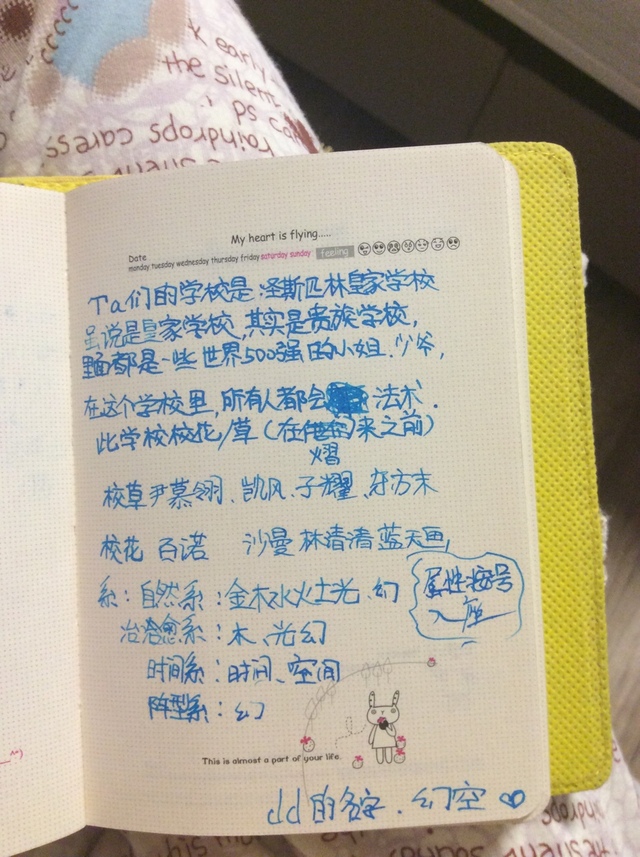 k early
the silent
ps car
raindrops caress
My heart is flying.....
Date
monday tuesday wednesday thursday friday saturday sunday feeling
Ta们的学校是:圣斯匹林皇家学校
虽说是皇家学校,其实是贵族学校,
里面都是一些世界500强的小姐.少爷,
在这个学校里,所有人都会 法术.
此学校校花/草(在 来之前)
熠
校草 尹慕翎、凯风、子耀、东方末
校花 百诺 沙曼 林清清 蓝天画,
系:自然系:金木水火土光、幻
属性按号
入座
治愈系:木、光幻
时间系:时间、空间
阵型系:幻
This is almost a part of your life.
dd的名字.幻空